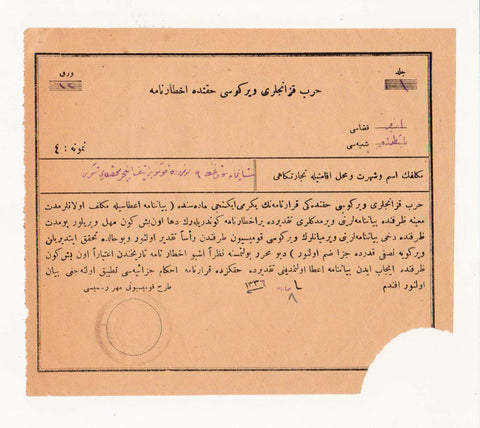 جلد
ورق
حرب قزانجلری ویركوسی حقنده اخطارنامه
قضاسی
شعبه‌سی
نمونه : ٤
مكلفك اسم و شهرت و محل اقامتیله تجارتكاهی
حرب قزانجلری ویركوسی حقنده‌كی قرارنامه‌نك یكرمی‌ایكنجی ماده‌سنده ( بیاننامه اعطاسیله مكلف اولانلر مدت
معینه ظرفنده بیاننامه‌لرینی ویرمدكلری تقدیرده براخطارنامه كوندریله‌رك دها اون‌بش كون مهل ویریلور بومدت
ظرفنده دخی بیاننامه‌لرینی ویرمیانلرك ویركوسی قومیسیون طرفندن رأساً تقدیر اولنور وبوحالده تحقق ایتدیریلن
ویركویه نصفی قدرده جزا ضم اولنور ) دیو محرر بولنمسنه نظراً اشبو اخطارنامه تاریخندن اعتباراً اون بش‌كون
ظرفنده ایجاب ایدن بیاننامه اعطا اولنمدیغی تقدیرده حقكزده قرارنامه احكام جزائیه‌سی تطبیق اولنه‌جغی بیان
اولنور افندم
٨ ١٣٣٦
طرح قومیسیونی مهر رسمیسی